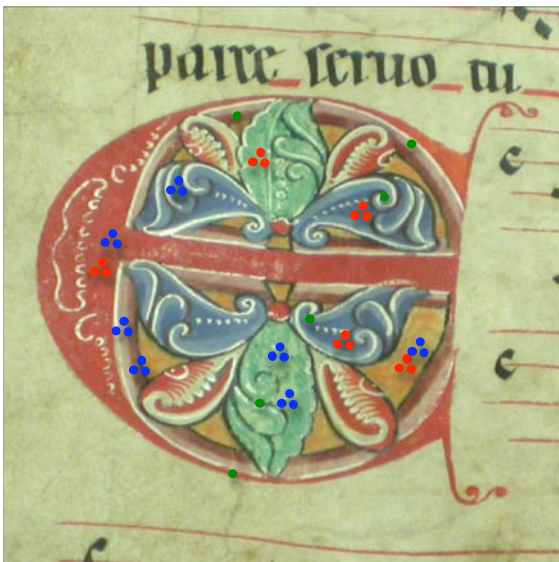 parce seruo tu
E